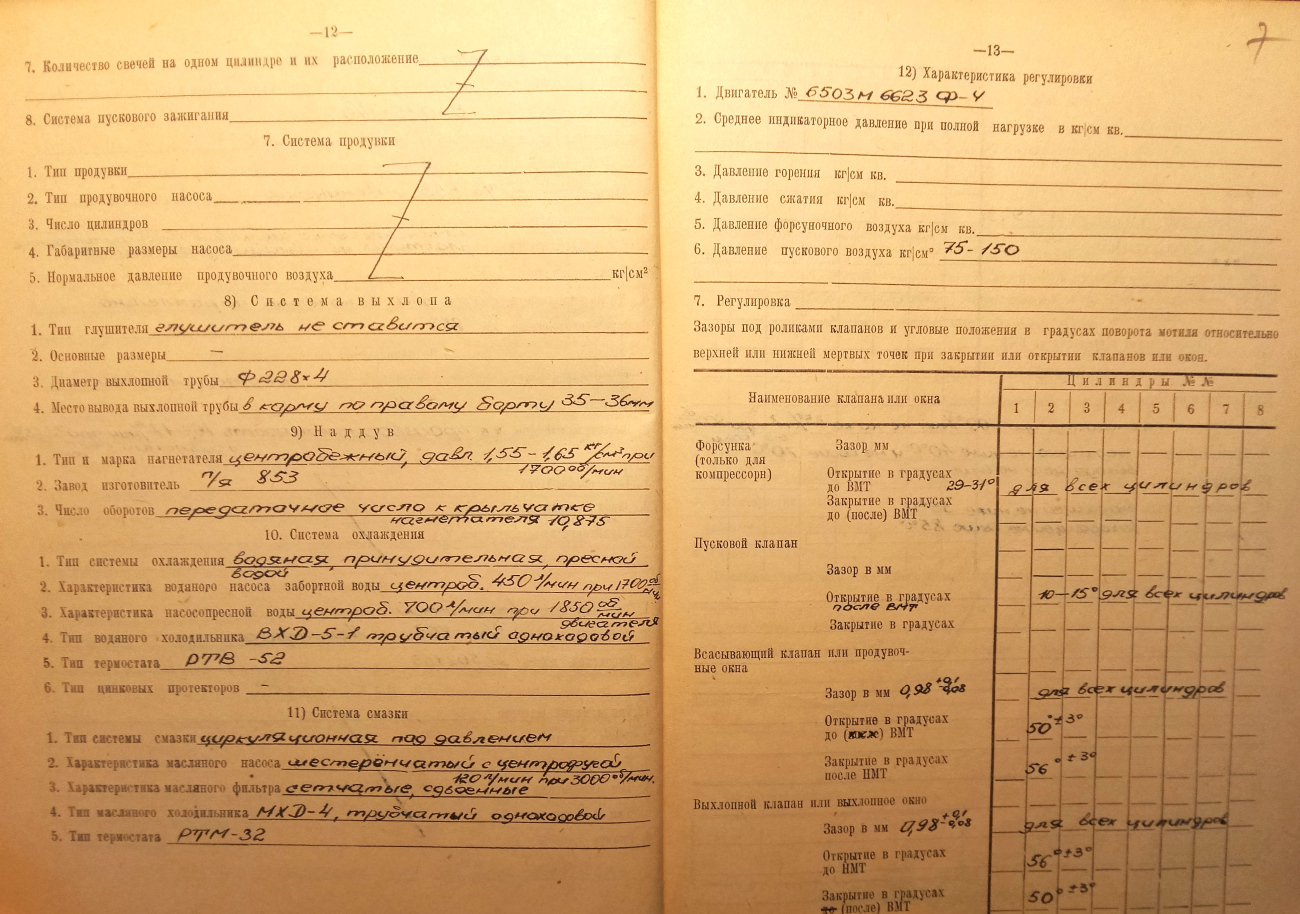 —12—
7. Количество свечей на одном цилиндре и их расположение
8. Система пускового зажигания
7. Система продувки
1. Тип продувки
2. Тип продувочного насоса
3. Число цилиндров
4. Габаритные размеры насоса
5. Нормальное давление продувочного воздуха кг|см²
8) Система выхлопа
1. Тип глушителя глушитель не ставится
2. Основные размеры —
3. Диаметр выхлопной трубы Ф 228×4
4. Место вывода выхлопной трубы в корму по правому борту 35—36мм
9) Наддув
1. Тип и марка нагнетателя центробежный, давл. 1,55-1,65 кг/см² при
1700 об/мин
2. Завод изготовитель п/я 853
3. Число оборотов передаточное число к крыльчатке
нагнетателя 10,875
10. Система охлаждения
1. Тип системы охлаждения водяная, принудительная, пресной
водой
2. Характеристика водяного насоса забортной воды центроб. 450 л/мин при 1700 об/мин
3. Характеристика насосопресной воды центроб. 700 л/мин при 1850 об/мин
двигателя
4. Тип водяного холодильника ВХД-5-1 трубчатый одноходовой
5. Тип термостата РТВ-52
6. Тип цинковых протекторов —
11) Система смазки
1. Тип системы смазки циркуляционная под давлением
2. Характеристика масляного насоса шестерёнчатый с центрофугой
120 л/мин при 3000 об/мин.
3. Характеристика масляного фильтра сетчатые, сдвоенные
4. Тип масляного холодильника МХД-4, трубчатый одноходовой
5. Тип термостата РТМ-32
7
—13—
12) Характеристика регулировки
1. Двигатель № 6503М 6623 Ф-4
2. Среднее индикаторное давление при полной нагрузке в кг|см кв.
3. Давление горения кг|см кв.
4. Давление сжатия кг|см кв.
5. Давление форсуночного воздуха кг|см кв.
6. Давление пускового воздуха кг|см° 75-150
7. Регулировка
Зазоры под роликами клапанов и угловые положения в градусах поворота мотиля относительно
верхней или нижней мертвых точек при закрытии или открытии клапанов или окон.
Наименование клапана или окна Цилиндры №№
1 2 3 4 5 6 7 8
Форсунка Зазор мм
(только для
компрессорн) Открытие в градусах
до ВМТ 29-31° для всех цилиндров
Закрытие в градусах
до (после) ВМТ
Пусковой клапан
Зазор в мм
Открытие в градусах 10-15° для всех цилиндров
после ВМТ
Закрытие в градусах
Всасывающий клапан или продувоч-
ные окна
Зазор в мм 0,98 +0,1 -0,08 для всех цилиндров
Открытие в градусах
до ВМТ 50°±3°
Закрытие в градусах
после НМТ 56°±3°
Выхлопной клапан или выхлопное окно
Зазор в мм 0,98 +0,1 -0,08 для всех цилиндров
Открытие в градусах
до НМТ 56°±3°
Закрытие в градусах
(после) ВМТ 50°±3°